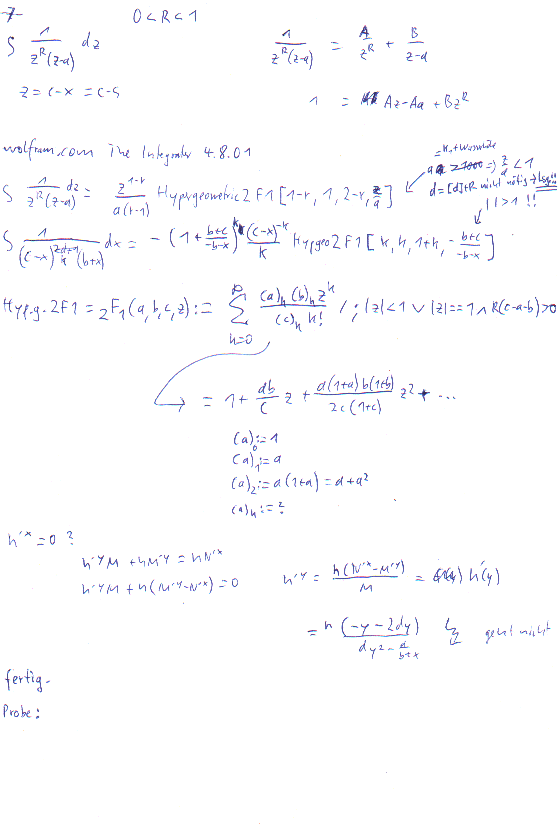 7
0 < R < 1
∫ 1/(z^R (z-a)) dz
1/(z^R (z-a)) = A/z^R + B/(z-a)
z = c-x = c-s
1 = Az - Aa + Bz^R
wolfram.com The Integrator 4.8.01
∫ 1/(z^R (z-a)) dz = z^(1-r)/(a(r-1)) Hypergeometric2F1[1-r, 1, 2-r, z/a]
=> z/a < 1
| | > 1 !!
∫ 1/((c-x) (b+x)) dx = -(1 + (b+c)/(-b-x))^k (c-x)^-k / k Hypgeo2F1[k, k, 1+k, -(b+c)/(-b-x)]
Hypg. 2F1 = ₂F₁(a,b,c,z) := ∑ n=0 ∞ (a)_n (b)_n z^n / ((c)_n n!) /; |z|<1 ∨ |z|==1 ∧ R(c-a-b)>0
= 1 + ab/c z + a(1+a)b(1+b)/(2c(1+c)) z² + ...
(a)_0 := 1
(a)_1 := a
(a)_2 := a(1+a) = a+a²
(a)_n := ?
h'^x = 0 ?
h'^y M + h M'^y = h N'^x
h'^y M + h(M'^y - N'^x) = 0
h'^y = h(N'^x - M'^y)/M = h'(y)
= h(-y-2dy)/(dy² - a/(b+x)) geht nicht
fertig.
Probe: